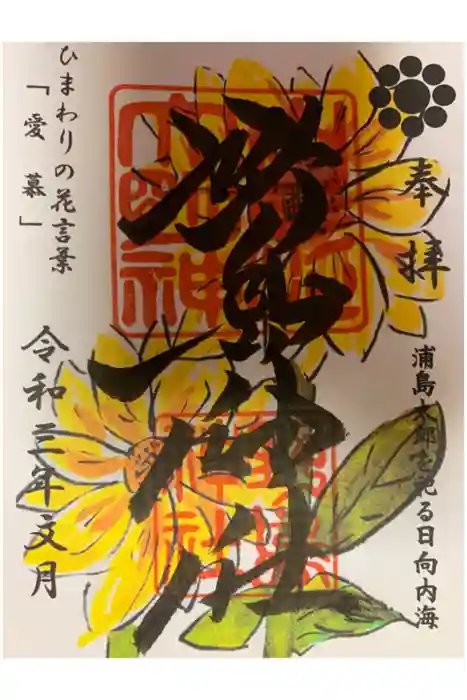 奉拝
浦島太郎を祀る日向内海
野島神社
ひまわりの花言葉
「愛慕」
令和三年文月